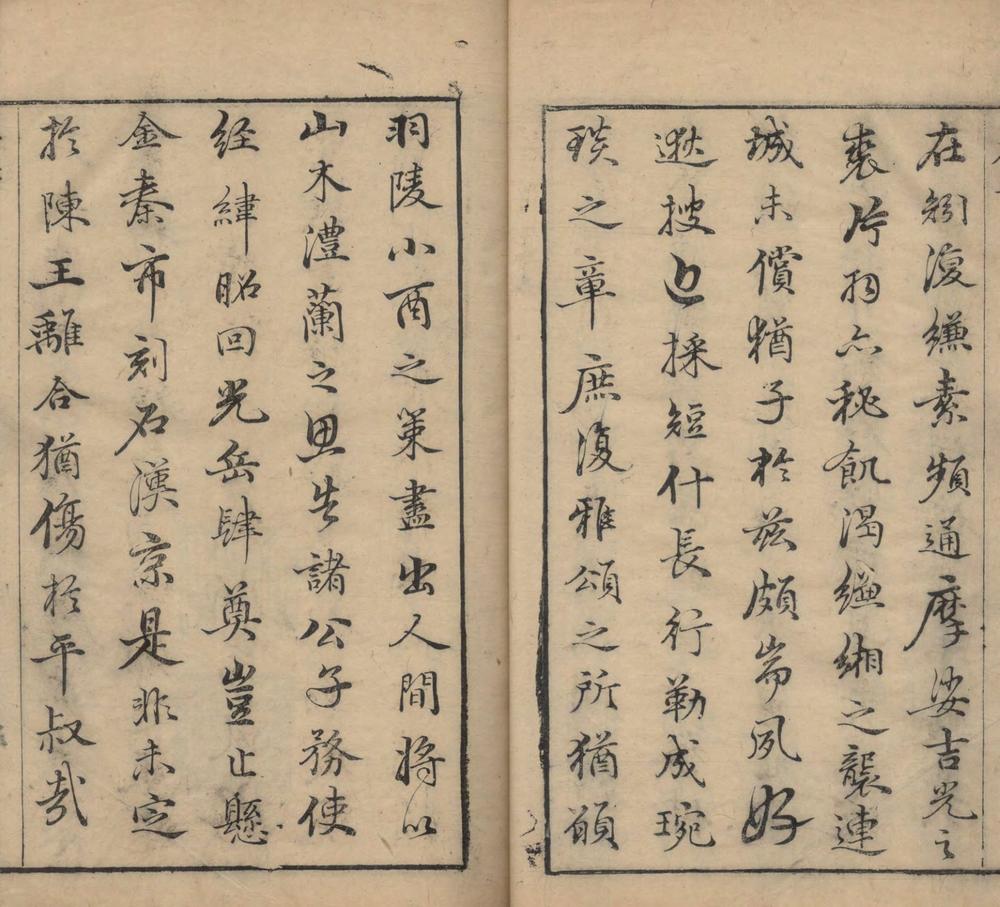 在斵復縑素頻通摩娑吉光之
裘片羽亦秘飢渴縑緗之襲連
城未償猶子於茲頗耑夙好
遐搜迩採短什長行勒成琬
琰之章庶復雅頌之所猶願
羽陵小酉之策盡出人間將以
山木澧蘭之思告諸公子務使
经緯昭回光岳肆奠豈止懸
金秦市刻石漢京是非未定
於陳王離合猶傷於平叔哉